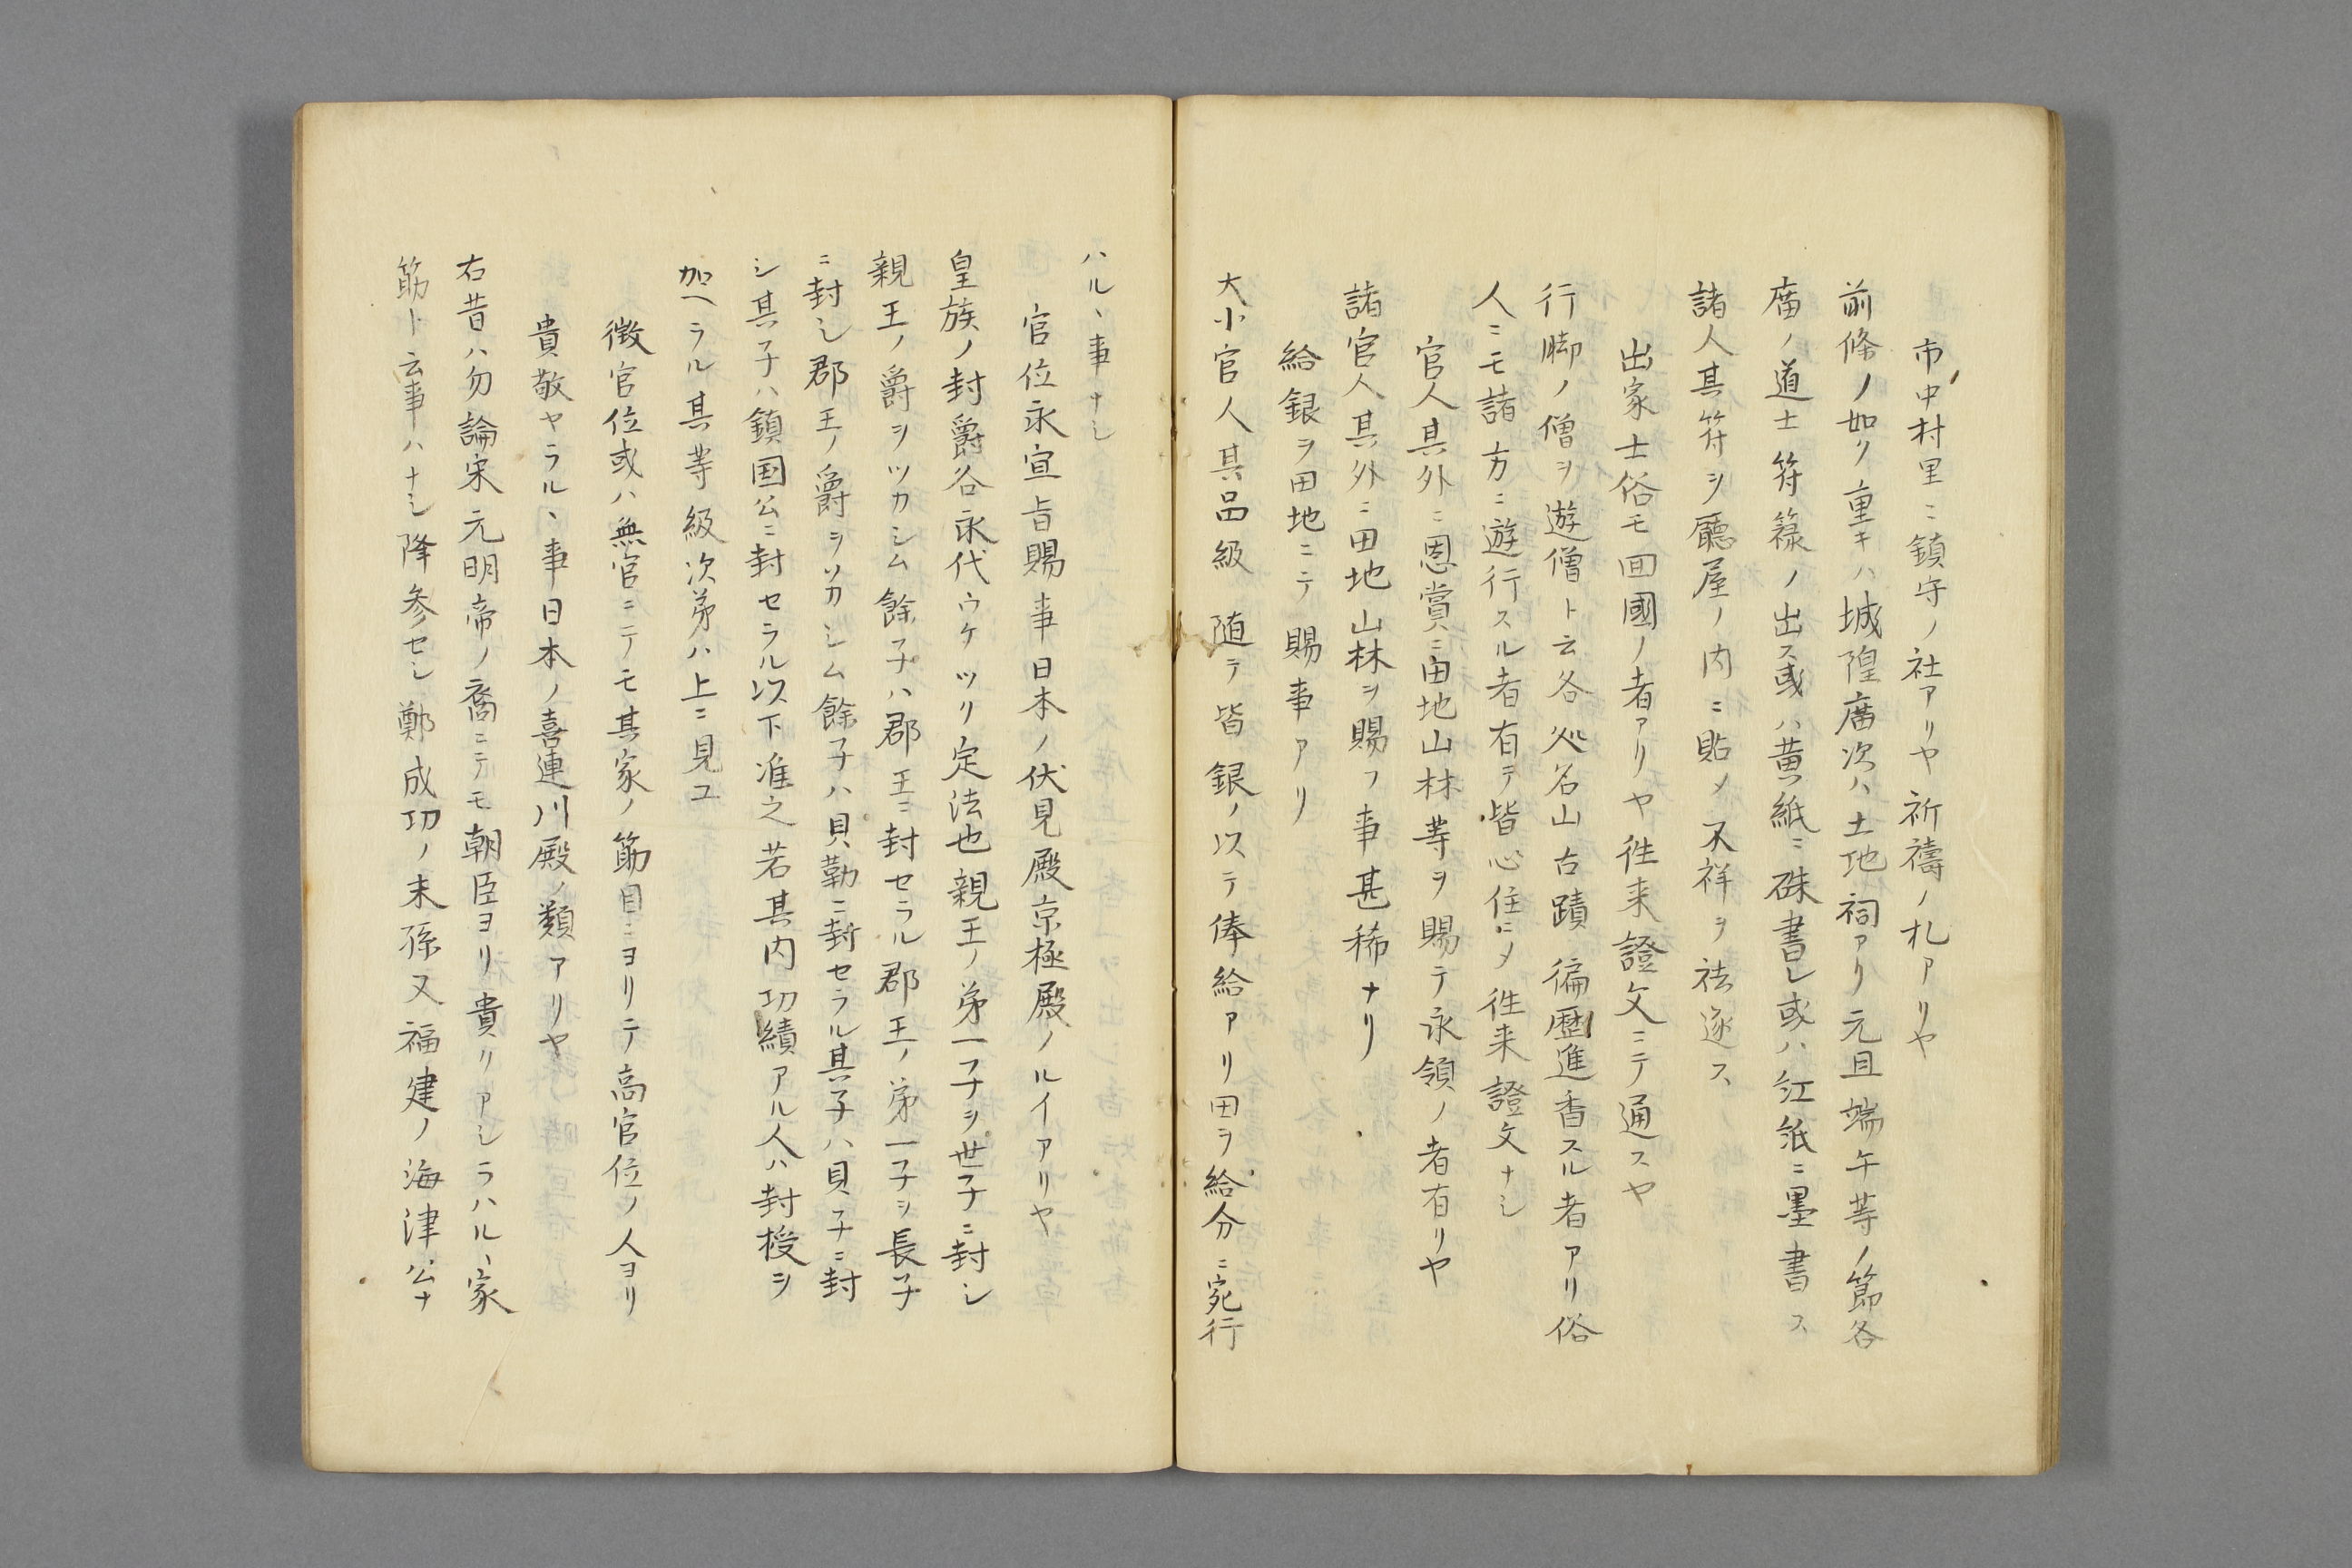 市中村里ニ鎮守ノ社アリヤ祈禱ノ札アリヤ
前條ノ如ク重キハ城隍廟次ハ土地祠アリ元旦端午等ノ節各
廟ノ道士符籙ノ出ス或ハ黄紙ニ硃書シ或ハ紅紙ニ墨書ス
諸人其符ヲ廳屋ノ内ニ貼メ不祥ヲ祛逐ス
出家士俗モ回國ノ者アリヤ徃来證文ニテ通スヤ
行脚ノ僧ヲ遊僧ト云各処名山古蹟徧歴進香スル者アリ俗
人ニモ諸方ニ遊行スル者有テ皆心住ニメ徃来證文ナシ
官人其外ニ恩賞ニ田地山林等ヲ賜テ永領ノ者有リヤ
諸官人其外ニ田地山林ヲ賜フ事甚稀ナリ
給銀ヲ田地ニテ賜事アリ
大小官人其品級随テ皆銀ノ以テ俸給アリ田ヲ給分ニ宛行
ハルヽ事ナシ
官位永宣旨賜事日本ノ伏見殿京極殿ノルイアリヤ
皇族ノ封爵各永代ウケツリ定法也親王ノ弟一子ヲ世子ニ封シ
親王ノ爵ヲツカシム餘子ハ郡王ニ封セラル郡王ノ弟一子ヲ長子
ニ封シ郡王ノ爵ヲツカシム餘子ハ貝勒ニ封セラル其子ハ貝子ニ封
シ其子ハ鎮国公ニ封セラル以下准之若其内功績アル人ハ封授ヲ
加ヘラル其等級次弟ハ上ニ見ユ
徴官位或ハ無官ニテモ其家ノ筋目ニヨリテ高官位ノ人ヨリ
貴敬ヤラルヽ事日本ノ喜連川殿ノ類アリヤ
右昔ハ勿論宋元明帝ノ裔ニテモ朝臣ヨリ貴リアシラハルヽ家
筋ト云事ハナシ降参セシ鄭成功ノ末孫又福建ノ海津公ナ